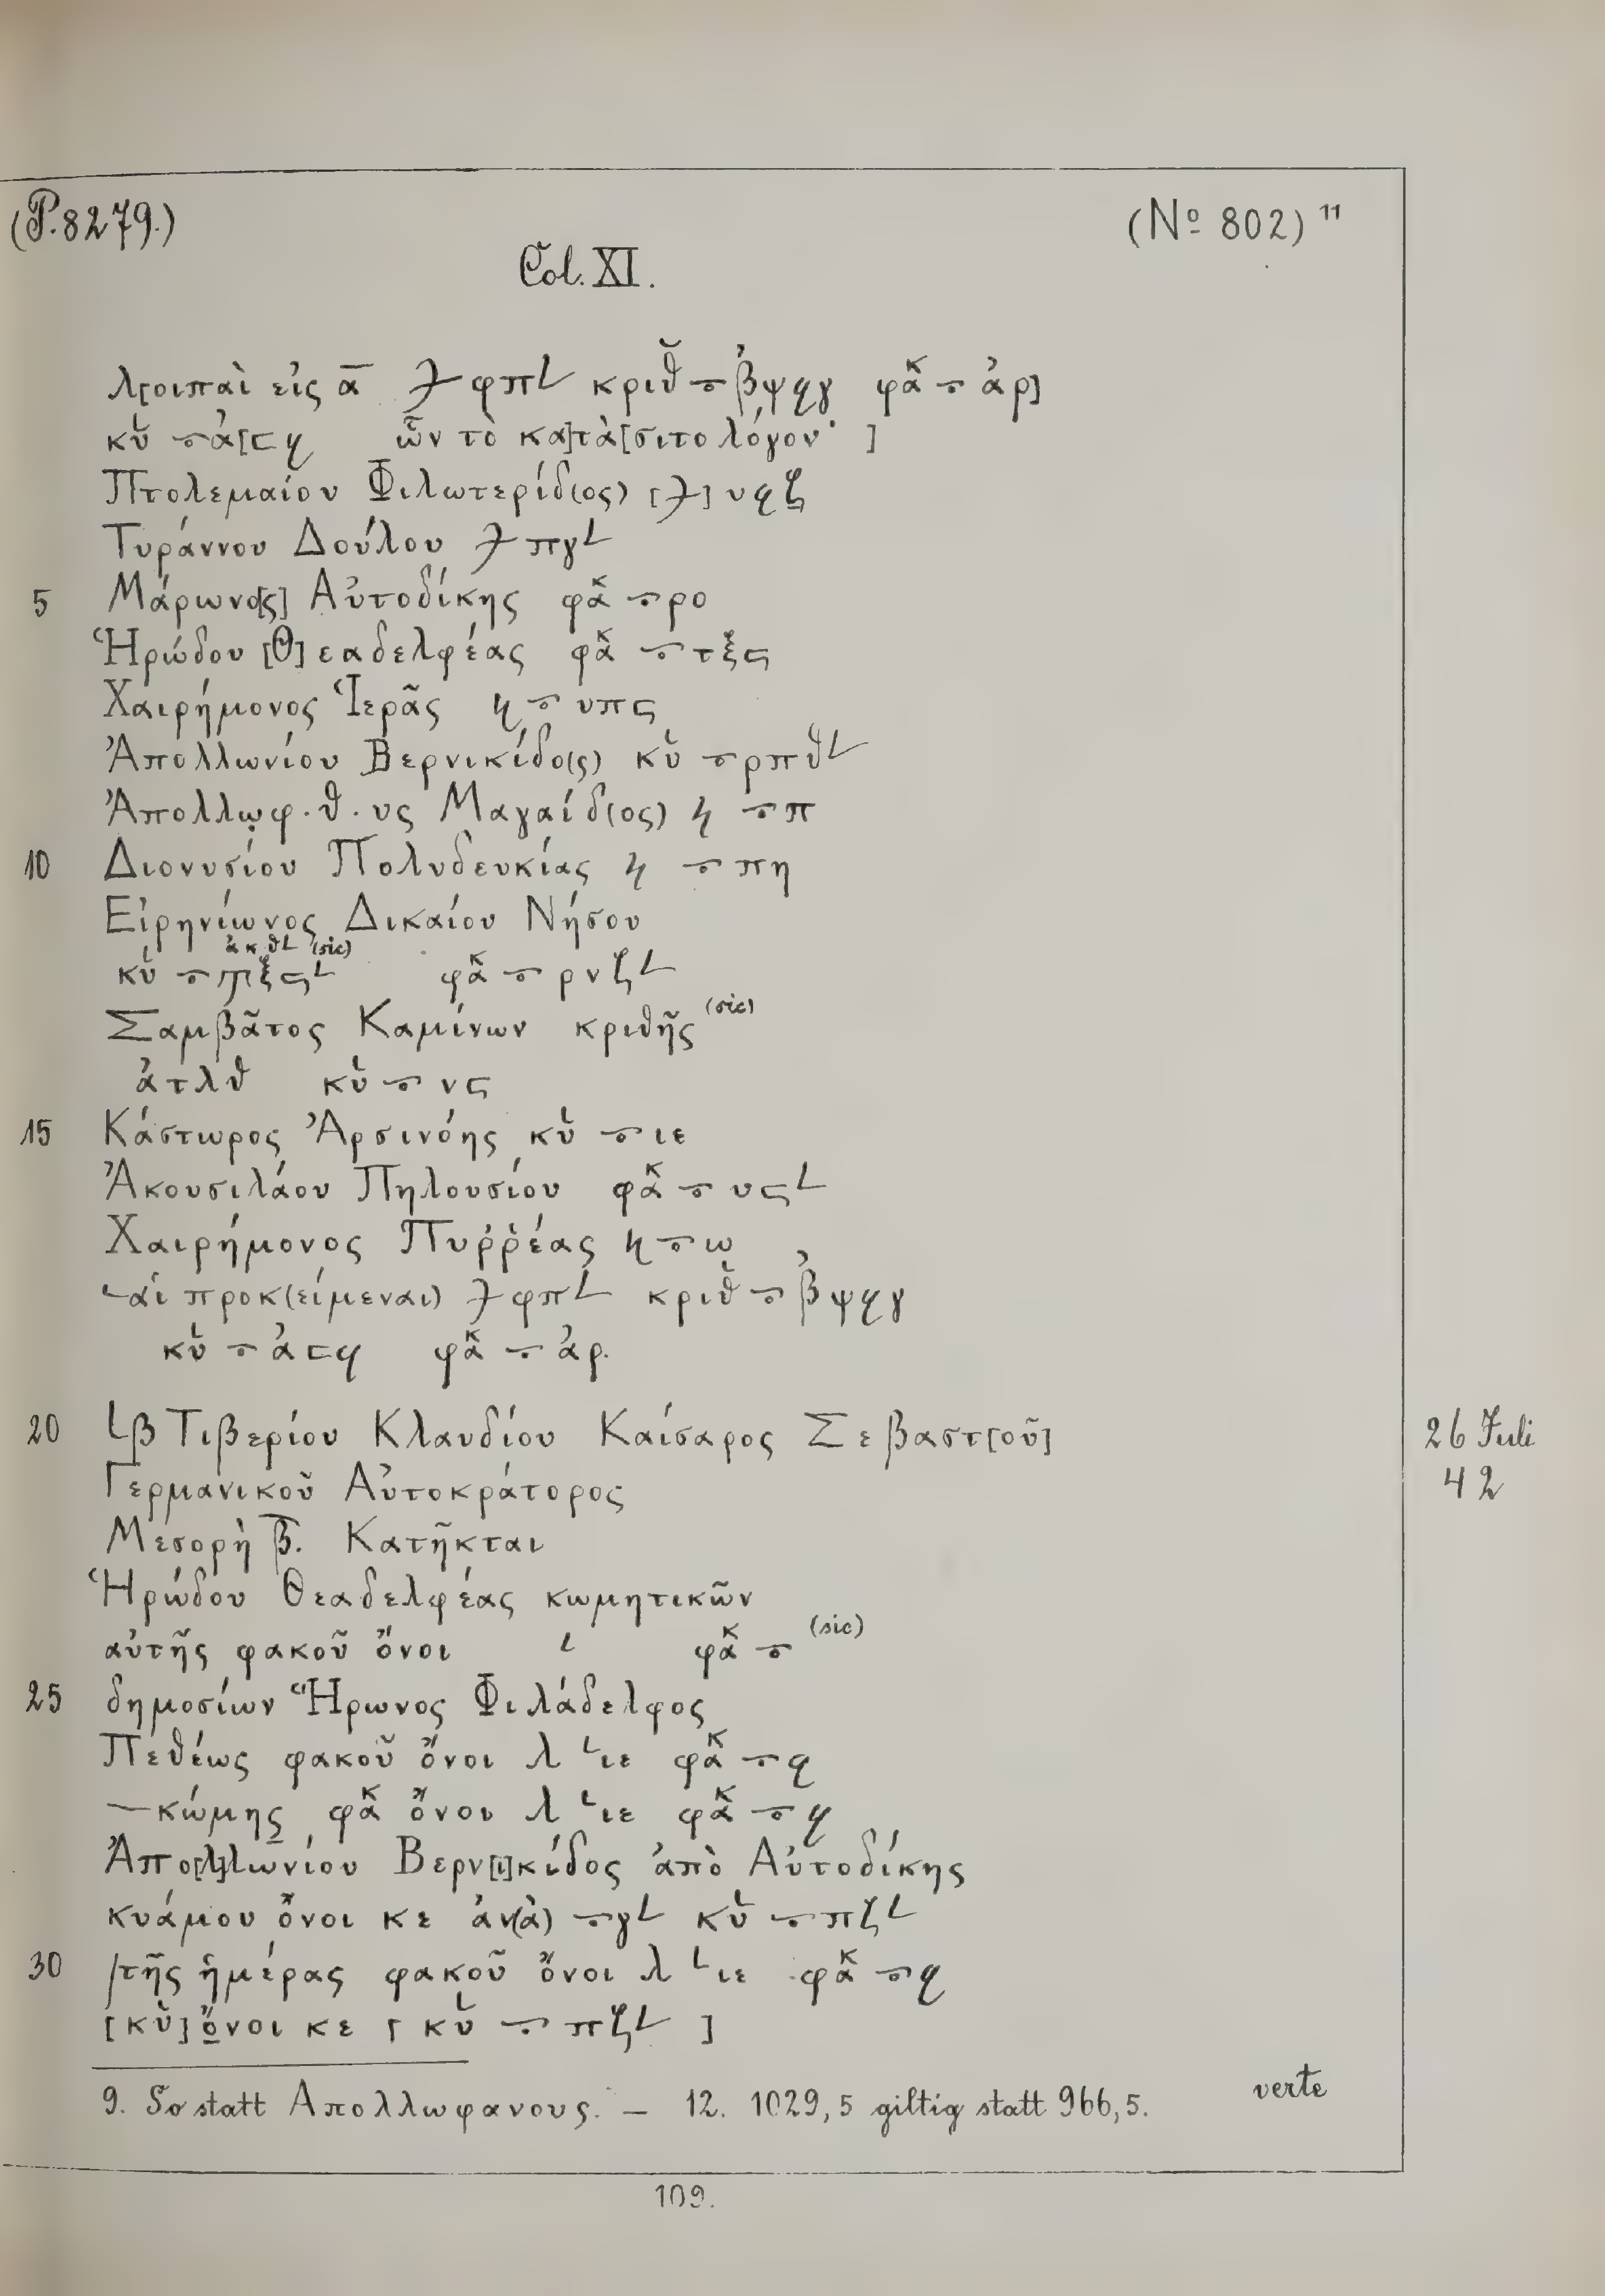 (P. 8279.)
(No 802) 11
Col. XI.
λ[οιπαὶ εἰς α̅ 𐅂 φπ𐅵 κριθ̆ ⲻ ͵βψϟγ φακ ⲻ ͵αρ]
κυ ⲻ ͵α[ϛϟ ὧν τὸ κα]τὰ[σιτολόγον· ]
Πτολεμαίου Φιλωτερίδ(ος) [ ] υϟζ
Τυράννου Δούλου πγ𐅵
5 Μάρωνο[ς] Αὐτοδίκης φακ ρο
Ἡρώδου [Θ]εαδελφέας φακ τξϛ
Χαιρήμονος Ἱερᾶς υπϛ
Ἀπολλωνίου Βερνικίδο(ς) κυ ρπθ𐅵
Ἀπολλωφ·θ·υς Μαγαίδ(ος) π
10 Διονυσίου Πολυδευκίας πη
Εἰρηνίωνος Δικαίου Νήσου
͵ακθ𐅵 (sic)
κυ ξϛ𐅵 φακ ρνζ𐅵
Σαμβᾶτος Καμίνων κριθῆς (sic)
͵ατλθ κυ νϛ
15 Κάστωρος Ἀρσινόης κυ ιε
Ἀκουσιλάου Πηλουσίου φακ υϛ𐅵
Χαιρήμονος Πυῤῥέας ω
αἱ προκ(είμεναι) φπ𐅵 κριθ ͵βψϟγ
κυ ͵αϛϟ φακ ͵αρ.
20 Lβ Τιβερίου Κλαυδίου Καίσαρος Σεβαστ[οῦ]
26 Juli
42
Γερμανικοῦ Αὐτοκράτορος
Μεσορὴ β̅. Κατῆκται
Ἡρώδου Θεαδελφέας κωμητικῶν
αὐτῆς φακοῦ ὄνοι φακ (sic)
25 δημοσίων Ἥρωνος Φιλάδελφος
Πεθέως φακοῦ ὄνοι λ Lιε φακ ϟ
—κώμης φακ ὄνοι λ Lιε φακ ϟ
Ἀπο[λ]λωνίου Βερν[ι]κίδος ἀπὸ Αὐτοδίκης
κυάμου ὄνοι κε ἀν(ὰ) γ𐅵 κυ πζ𐅵
30 /τῆς ἡμέρας φακοῦ ὄνοι λ Lιε φακ ϟ
[κυ] ὄνοι κε [ κυ πζ𐅵 ]
9. So statt Απολλωφανους. — 12. 1029,5 giltig statt 966,5.
verte
109.